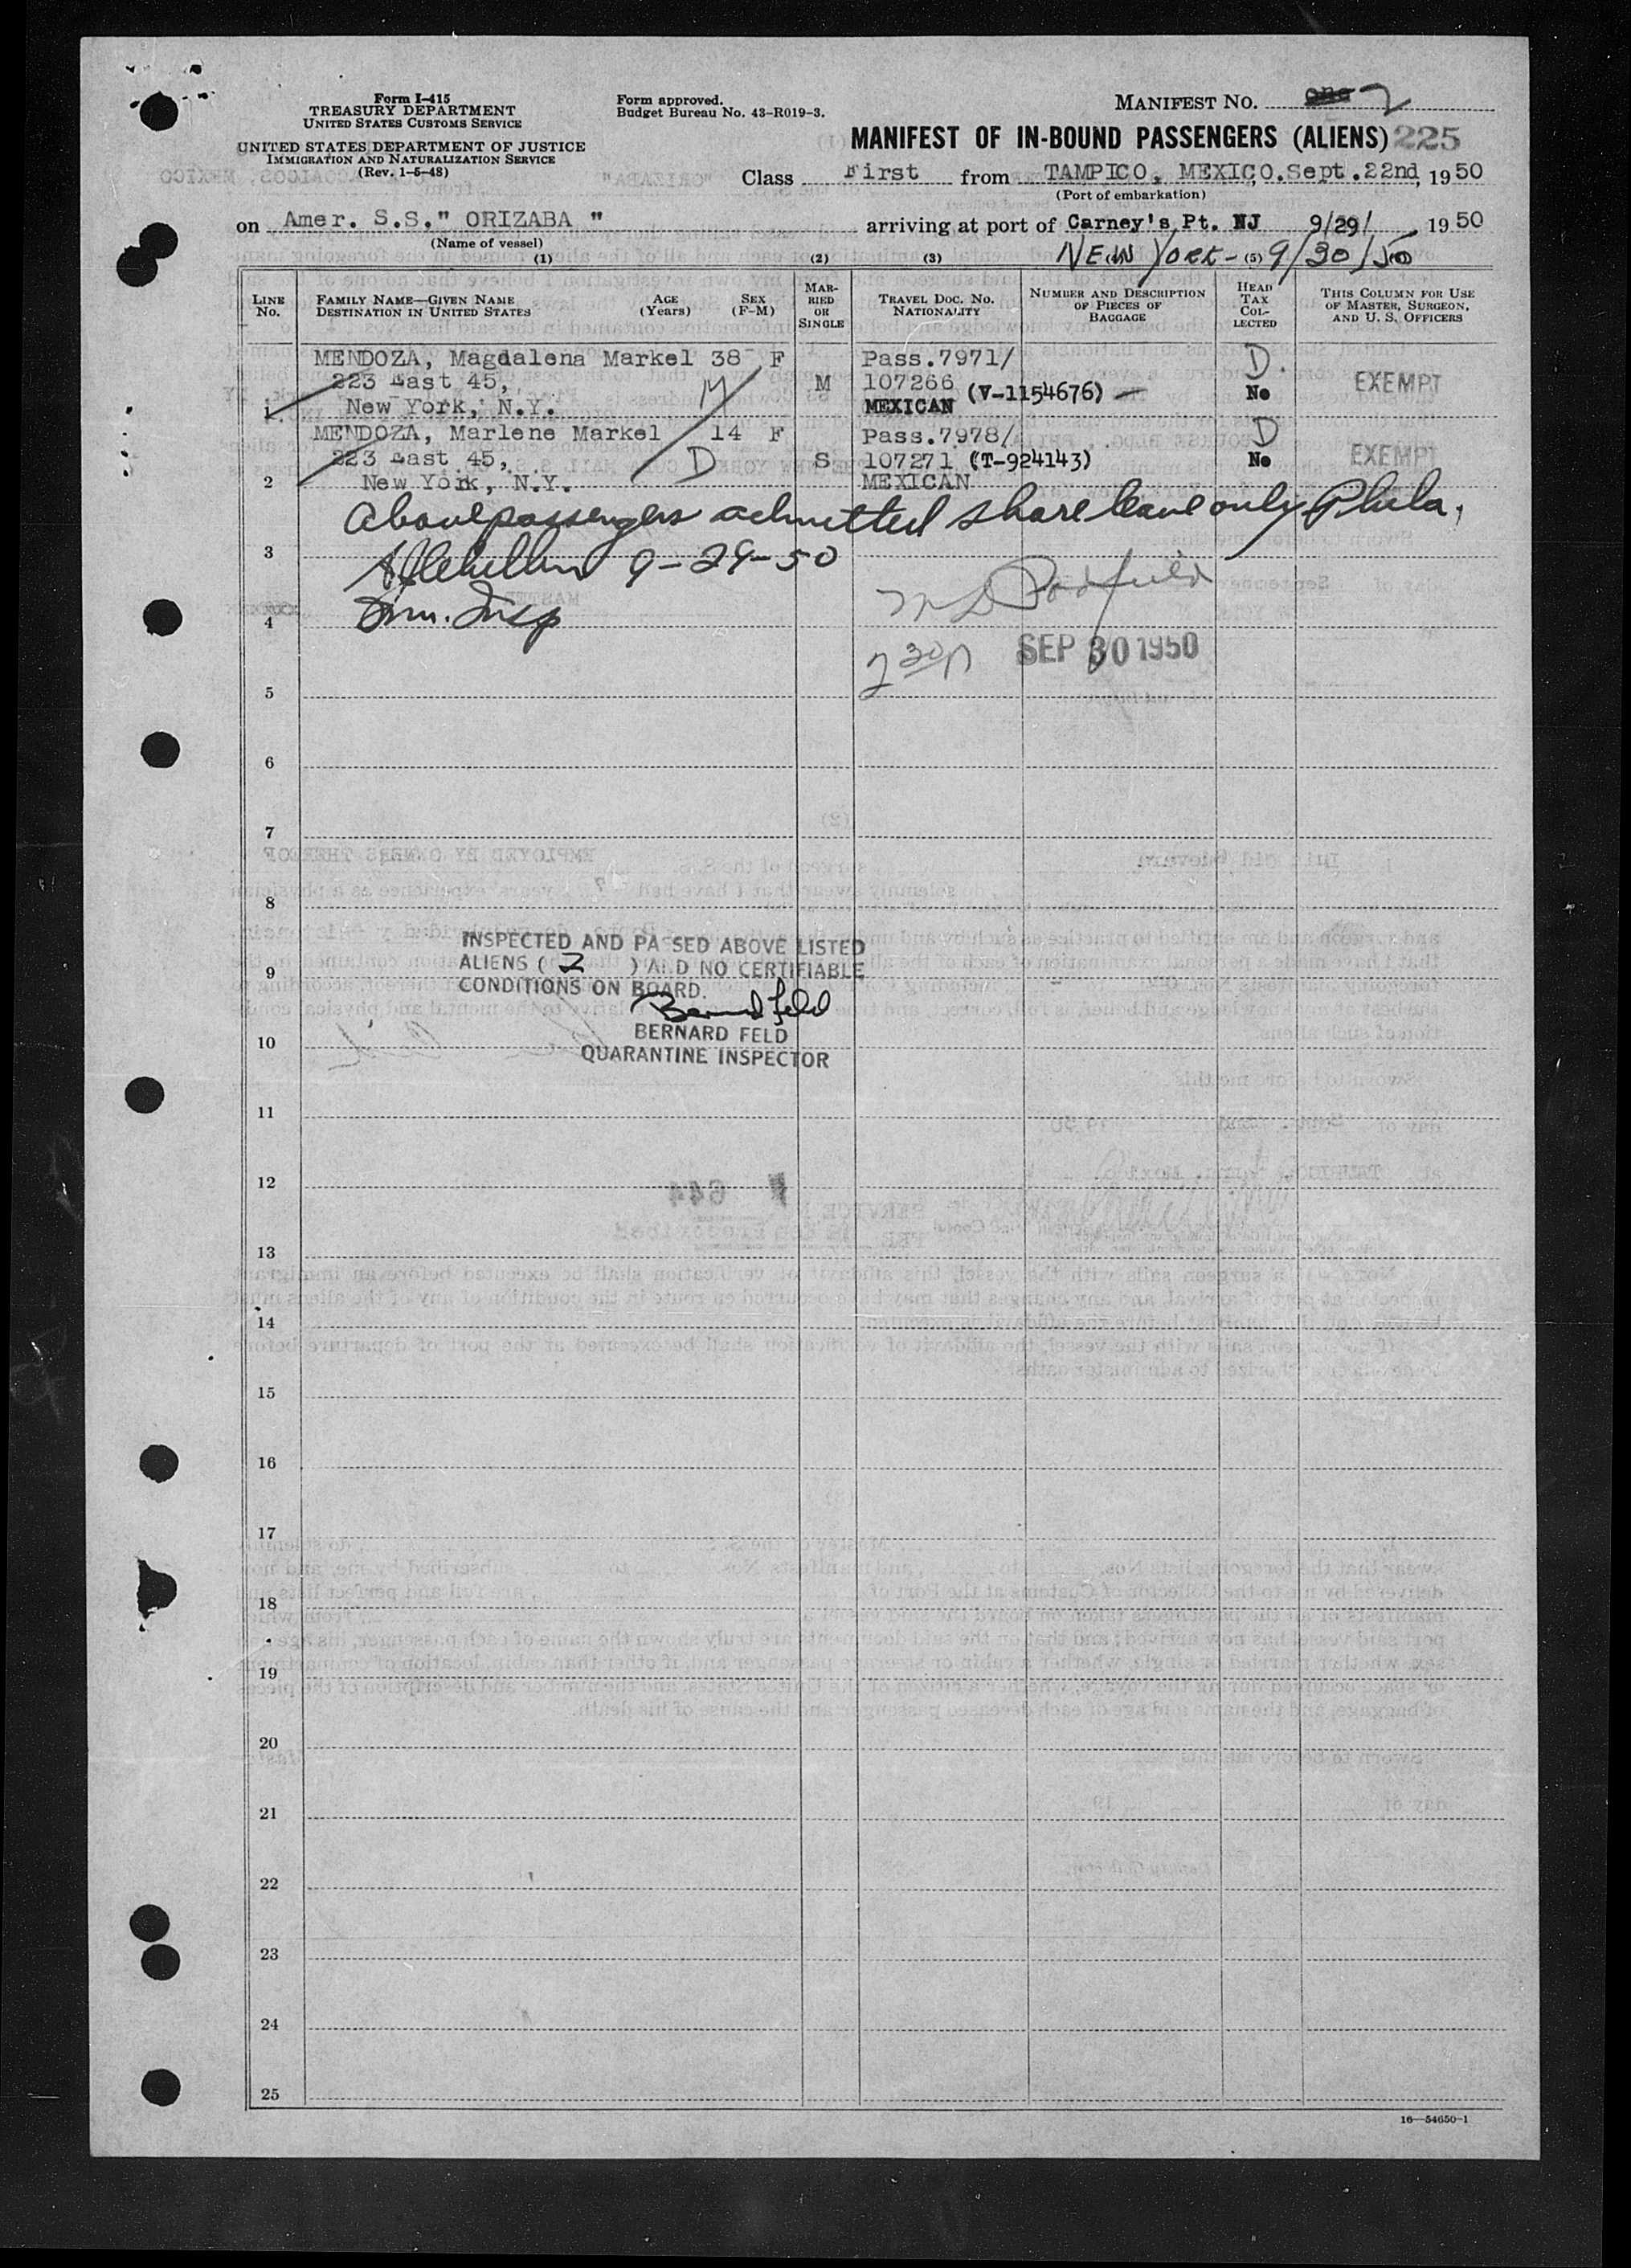 Form I-415
TREASURY DEPARTMENT
UNITED STATES CUSTOMS SERVICE
UNITED STATES DEPARTMENT OF JUSTICE
IMMIGRATION AND NATURALIZATION SERVICE
(Rev. 1-5-48)
Form approved.
Budget Bureau No. 43-R019-3.
MANIFEST NO. one 2
MANIFEST OF IN-BOUND PASSENGERS (ALIENS) 225
Class First from TAMPICO, MEXICO. Sept. 22nd, 1950
(Port of embarkation)
on Amer. S.S." ORIZABA " arriving at port of Carney's Pt. NJ 9/29/ 1950
(Name of vessel)
NEW York - 9/30/50
(1) (2) (3) (4) (5)
LINE No.
FAMILY NAME—GIVEN NAME
DESTINATION IN UNITED STATES
AGE (Years)
SEX (F-M)
MARRIED OR SINGLE
TRAVEL DOC. NO.
NATIONALITY
NUMBER AND DESCRIPTION OF PIECES OF BAGGAGE
HEAD TAX COLLECTED
THIS COLUMN FOR USE OF MASTER, SURGEON, AND U. S. OFFICERS
MENDOZA, Magdalena Markel 38 F Pass.7971/ D.
223 East 45, M 107266 (V-1154676) — No EXEMPT
1 New York, N.Y. MEXICAN
MENDOZA, Marlene Markel 14 F Pass.7978/ D
223 East 45, D S 107271 (T-924143) No EXEMPT
2 New York, N.Y. MEXICAN
Above passengers admitted shore leave only Phila.
3 9-29-50
4 Imm. Insp
2 30 P SEP 30 1950
5
6
7
8
INSPECTED AND PA SED ABOVE LISTED
9 ALIENS ( 2 ) AND NO CERTIFIABLE
CONDITIONS ON BOARD.
Bernard Feld
10 BERNARD FELD
QUARANTINE INSPECTOR
11
12
13
14
15
16
17
18
19
20
21
22
23
24
25
16—54650-1